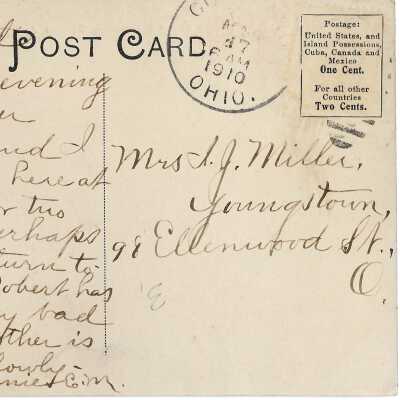 POST CARD
APR
27
AM
1910
OHIO.
Postage:
United States, and
Island Possessions,
Cuba, Canada and
Mexico
One Cent.
For all other
Countries
Two Cents.
evening
and I
here at
or two
perhaps
turn to-
Robert has
bad
other is
slowly-
C.M.
Mrs. S. J. Miller,
Youngstown,
98 Ellenwood St.,
O.